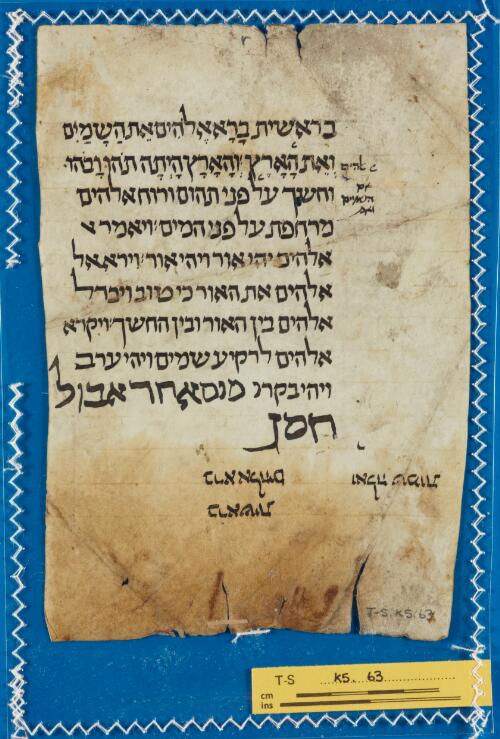 בראשית בָרָא אֱלֹהִים אֵת הַשָמַיִם
וְאֵת הָאָרֶץ׃ וְהָאָרֶץ הָיְתָה תֹהוּ וָבֹהוּ
אלהים
את
השמים
ואת
וחשך על פני תהום ורוח אלהים
מרחפת על פני המים׃ ויאמר
אלהים יהי אור ויהי אור׃ וירא אל
אלהים את האור כי טוב ויבדל
אלהים בין האור ובין החשך׃ ויקרא
אלהים לרקיע שמים ויהי ערב
ויהי בקר
ואלה שמות
ברא אלהים
בראשית
T-S. K5. 63
T-S K5. 63
cm
ins